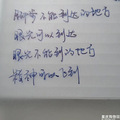 脚步不能到达的地方
眼光可以到达
眼光不能到的地方
精神可以飞到